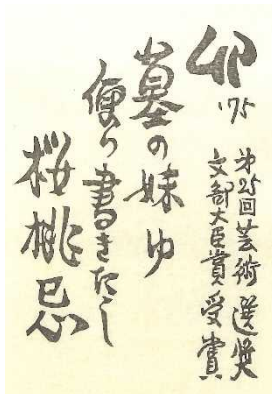 卯
'75
第25回芸術選奨
文部大臣賞受賞
墓の妹ゆ
便り書きたし
桜桃忌